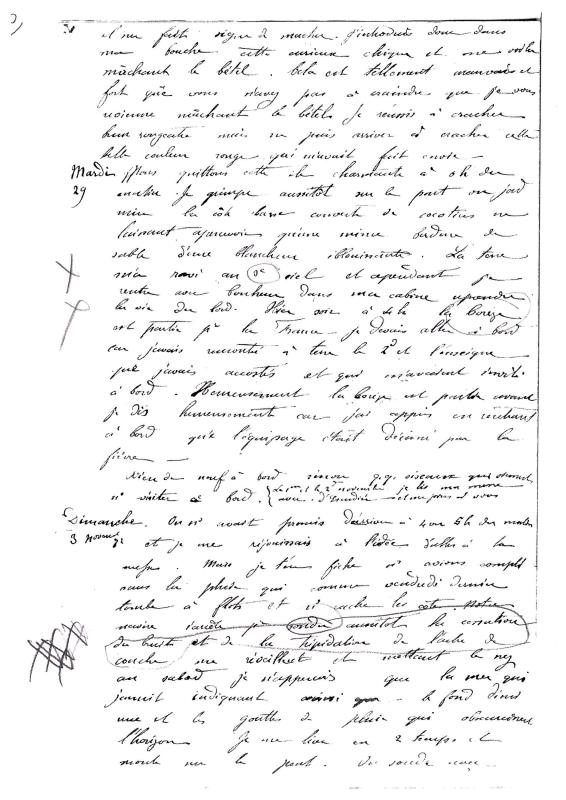 il me fait signe de macher. J'introduis donc dans
ma bouche cette curieuse chique et me voila
mâchant le bétel. Cela est tellement mauvais et
fort que vous n'avez pas à craindre que je vous
revienne mâchant le bétel. Je réussis à cracher
mais ne puis arriver à cracher cette
belle couleur rouge qui m'avait fait envie —
Mardi Nous quittons cette île charmante à 6h du
29 matin. Je grimpe aussitôt sur le pont
la côte basse couverte de cocotiers ne
laissant apercevoir qu'une mince bordure de
sable d'une blancheur éblouissante. La terre
m'a ravi au 7e ciel et cependant je
rentre avec bonheur dans ma cabine reprendre
la vie du bord. Hier soir à 4h la Corrèze
est partie pr la France — je devais aller à bord
car j'avais rencontré à terre le 2d et l'enseigne
que j'avais accostés et qui m'avaient invité
à bord. Heureusement la Corrèze est partie avant
je dis heureusement car j'ai appris en rentrant
à bord que l'équipage était décimé par la
fièvre —
Rien de neuf à bord sinon q.q. oiseaux qui viennent
n/ visiter à bord. Le 1er et le 2 novembre je les ai
Dimanche. On n/ avait promis d'arriver à 4 ou 5h du matin
3 Novemb. et je me réjouissais à l'idée d'aller à la
messe. Mais je t'en fiche n/ avions compté
sans la pluie qui comme vendredi dernier
tombe à flots et n/ cache les côtes. Notre
navire s'arrête pr sonder aussitôt la cessation
du bruit et de la trépidation de l'arbre de
couche me réveillent et mettant le nez
au sabord je n'aperçois que la mer qui
jaunit indiquant ainsi le fond d'une
mer et les gouttes de pluie qui obscurcissent
l'horizon. Je me lève en 2 temps et
monte sur le pont. On sonde